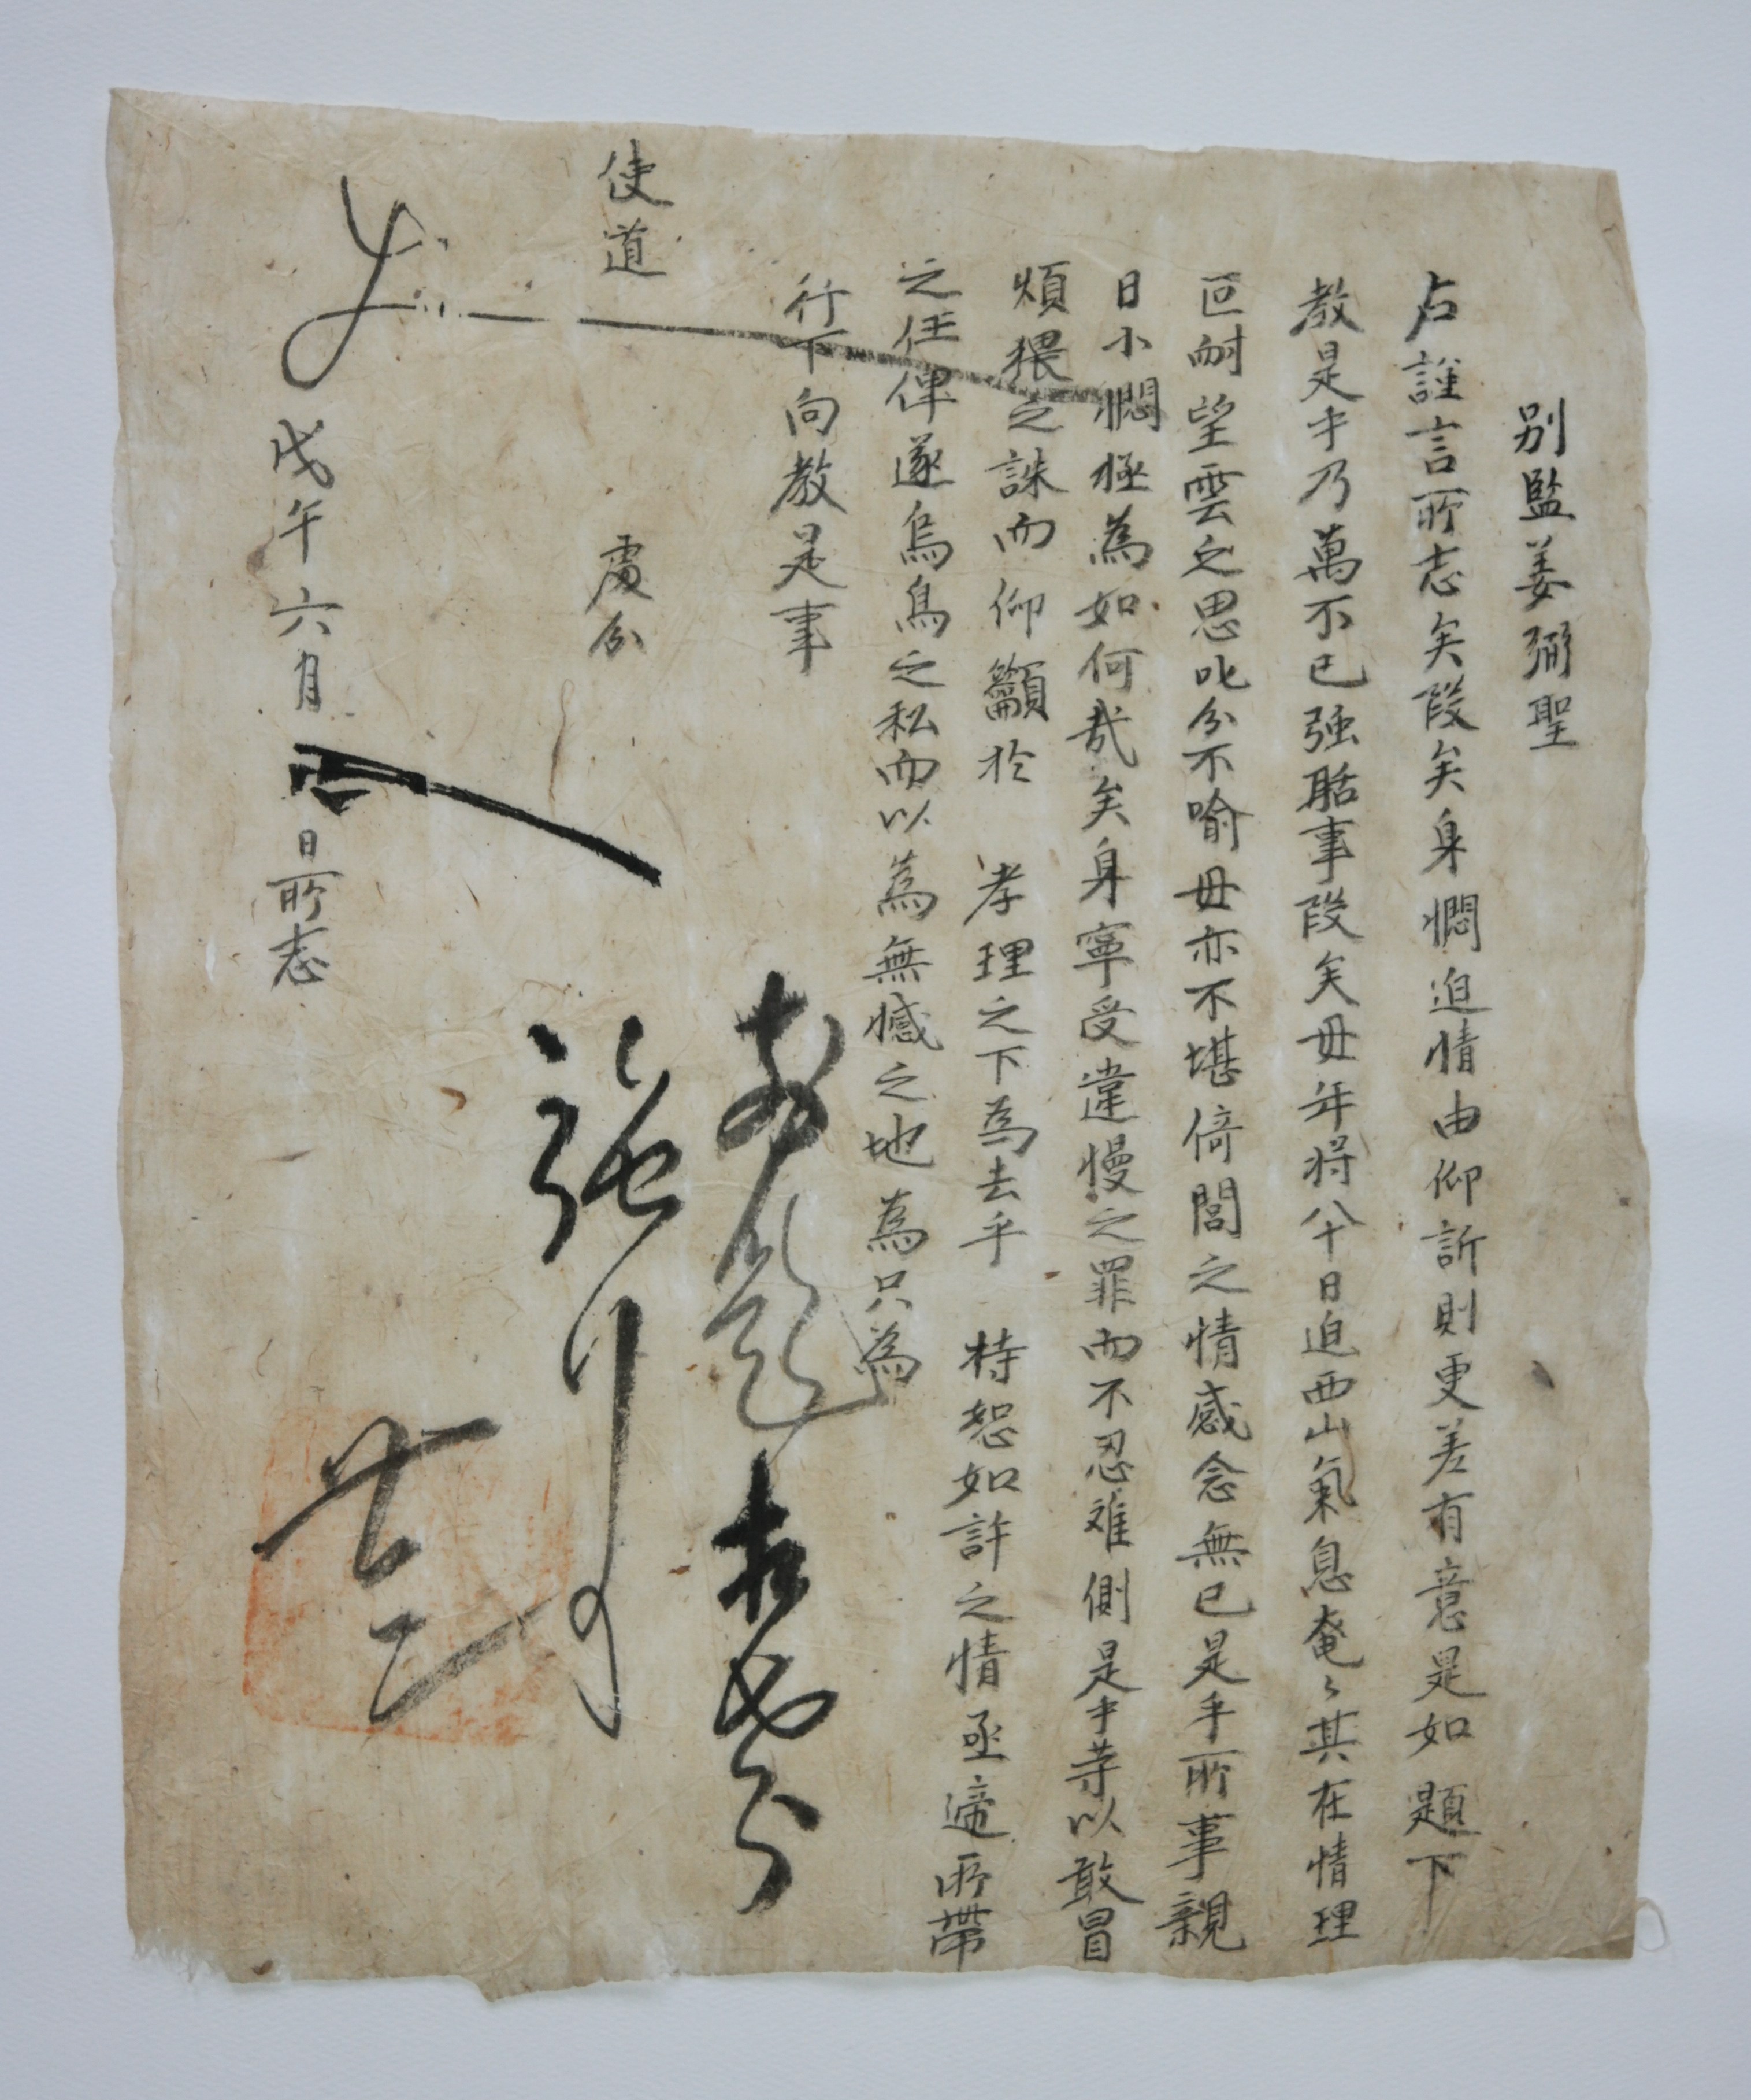 別監姜弼聖
右謹言所志矣段矣身憫迫情由仰訴則更差有意是如題下
教是乎乃萬不已强聒事段矣母年將八十日迫西山氣息奄〻其在情理
叵耐望雲之思叱分不喩母亦不堪倚閭之情感念無已是乎所事親
日小憫極爲如何哉矣身寧受違慢之罪而不忍难側是乎等以敢冒
煩猥之誅而仰籲於 孝理之下爲去乎 特恕如許之情亟遆所帶
之任俾遂烏鳥之私而以爲無憾之地爲只爲
行下向教是事
使道 處分
戊午六月 日所志
廿二